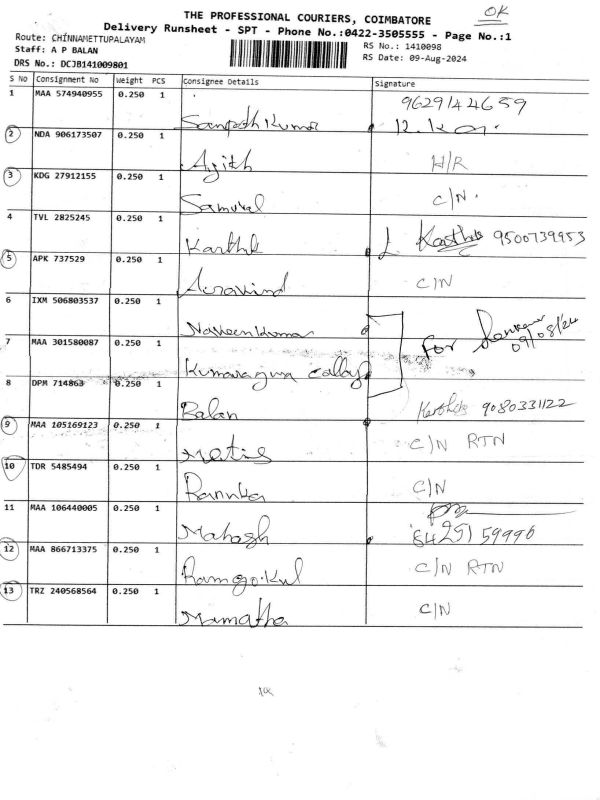 OK
THE PROFESSIONAL COURIERS, COIMBATORE
Delivery Runsheet - SPT - Phone No.:0422-3505555 - Page No.:1
Route: CHINNAMETTUPALAYAM
RS No.: 1410098
Staff: A P BALAN
RS Date: 09-Aug-2024
DRS No.: DCJB141009801
S No Consignment No Weight PCS Consignee Details Signature
1 MAA 574940955 0.250 1 Sampath Kumar 9629144659
2 NDA 906173507 0.250 1 Ajith H/R
3 KDG 27912155 0.250 1 Samuval C/N.
4 TVL 2825245 0.250 1 Karthik 9500739953
5 APK 737529 0.250 1 Aravind C/N
6 IXM 506803537 0.250 1 Naveenkumar
7 MAA 301580087 0.250 1 Kumaraguru for 09/08/24
8 DPM 714863 0.250 1 Balan 9080331122
9 MAA 105169123 0.250 1 C/N RTN
10 TDR 5485494 0.250 1 C/N
11 MAA 106440005 0.250 1 Mahash
12 MAA 866713375 0.250 1 Ramgo.kul C/N RTN
13 TRZ 240568564 0.250 1 Mamatha C/N